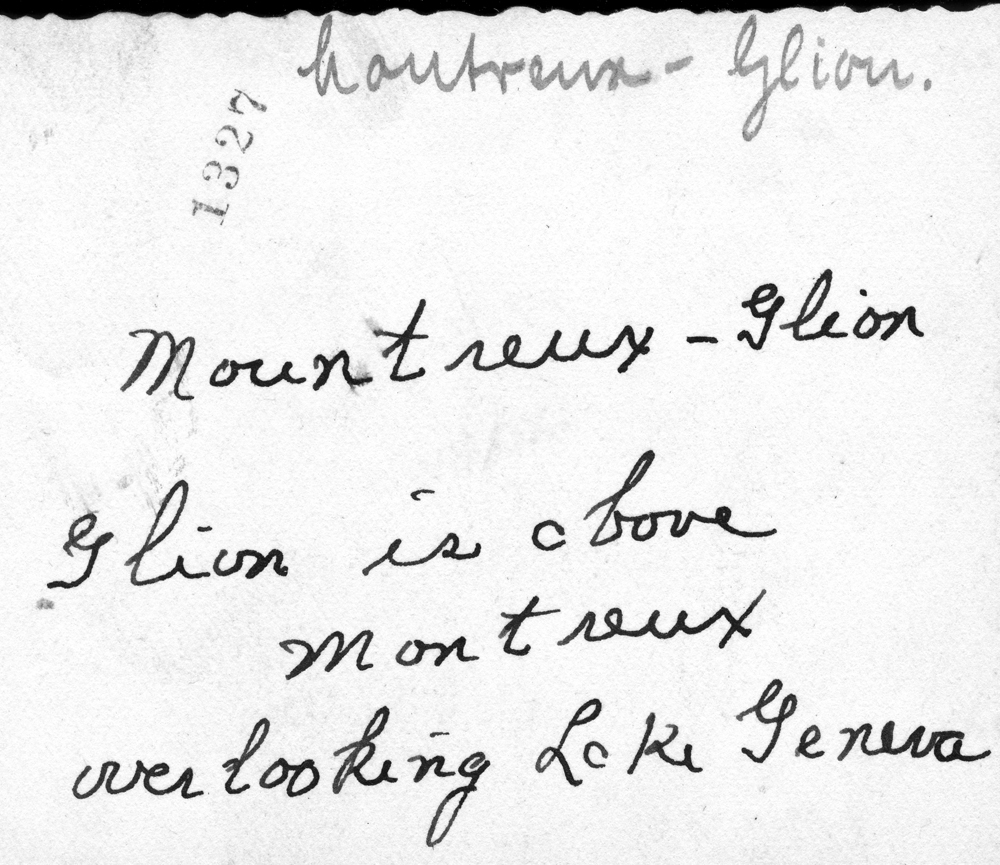 Montreux - Glion.
1327
Mountreux - Glion
Glion is above
Montreux
overlooking Lake Geneva